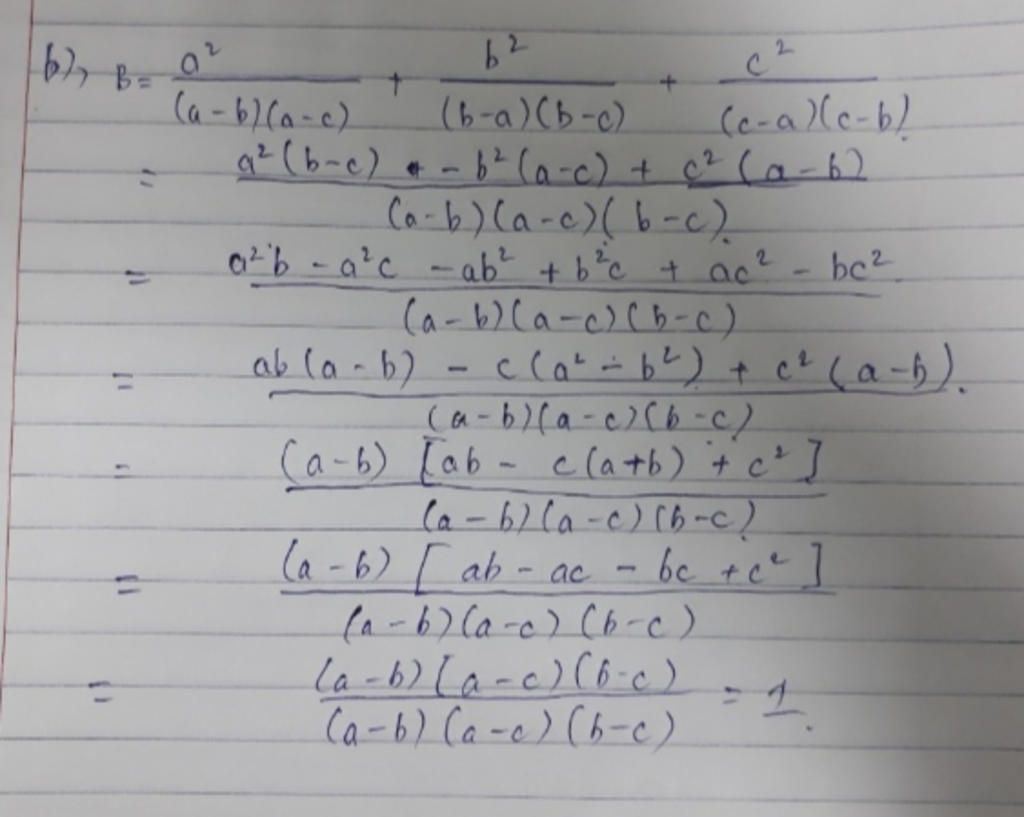 b), B = a²/(a-b)(a-c) + b²/(b-a)(b-c) + c²/(c-a)(c-b).
= a²(b-c) - b²(a-c) + c²(a-b)/(a-b)(a-c)(b-c).
= a²b - a²c - ab² + b²c + ac² - bc²/(a-b)(a-c)(b-c)
= ab(a-b) - c(a² - b²) + c²(a-b)./(a-b)(a-c)(b-c)
= (a-b)[ab - c(a+b) + c²]/(a-b)(a-c)(b-c).
= (a-b)[ab - ac - bc + c²]/(a-b)(a-c)(b-c)
= (a-b)(a-c)(b-c)/(a-b)(a-c)(b-c) = 1.